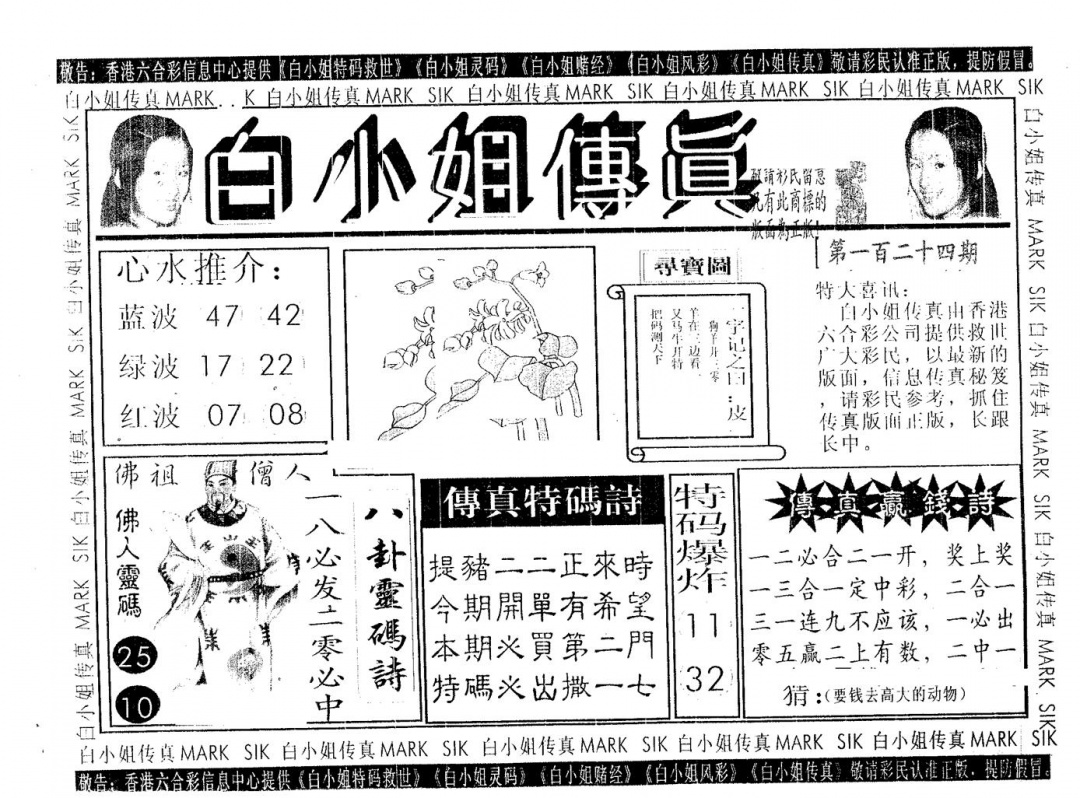 敬告：香港六合彩信息中心提供《白小姐特码救世》《白小姐灵码》《白小姐赌经》《白小姐风彩》《白小姐传真》敬请彩民认准正版，提防假冒。
白小姐传真MARK . . K 白小姐传真MARK SIK 白小姐传真MARK SIK 白小姐传真MARK SIK 白小姐传真MARK SIK
白小姐傳眞
敬請彩民留意
凡有此商標的
版面為正版！
第一百二十四期
心水推介：
蓝波 47 42
绿波 17 22
红波 07 08
尋寶圖
一字记之曰：皮
狗羊开三零
羊在三边看
又马牛开特
把码测天下
特大喜讯：
白小姐传真由香港
六合彩公司提供救世
广大彩民，以最新的
版面，信息传真秘笈
，请彩民参考，抓住
传真版面正版，长跟
长中。
佛祖 僧人
佛人靈碼
25
10
一八必发二零必中
八卦靈碼詩
傳真特碼詩
提豬二二正來時
今期開單有希望
本期必買第二門
特碼必出撒一七
特码爆炸
11
32
傳真贏錢詩
一二必合二一开，奖上奖
一三合一定中彩，二合一
三一连九不应该，一必出
零五赢二上有数，二中一
猜：(要钱去高大的动物)
白小姐传真MARK SIK 白小姐传真MARK SIK 白小姐传真MARK SIK 白小姐传真MARK SIK 白小姐传真MARK SIK
敬告：香港六合彩信息中心提供《白小姐特码救世》《白小姐灵码》《白小姐赌经》《白小姐风彩》《白小姐传真》敬请彩民认准正版，提防假冒。
白小姐传真 MARK SIK 白小姐传真 MARK SIK 白小姐传真 MARK SIK
白小姐传真 MARK SIK 白小姐传真 MARK SIK 白小姐传真 MARK SIK